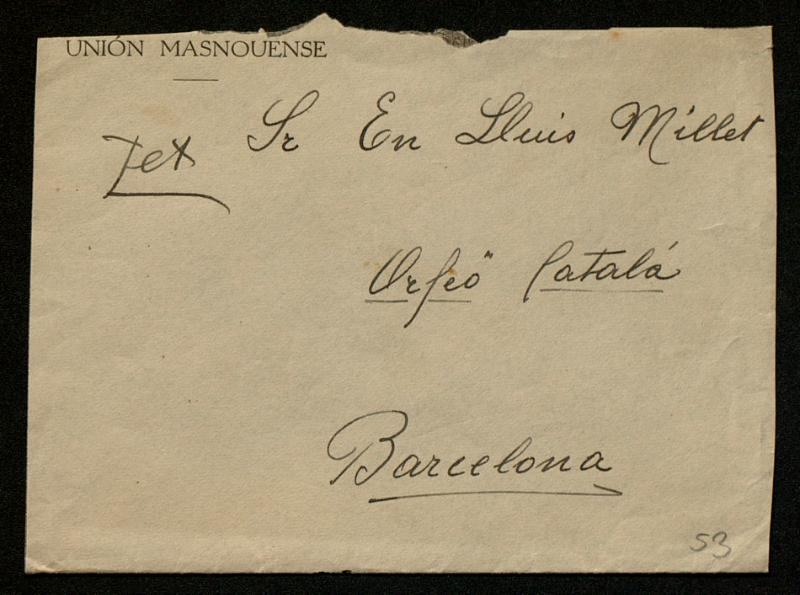 UNIÓN MASNOUENSE
Sr En Lluis Millet
Orfeó Catalá
Barcelona
53